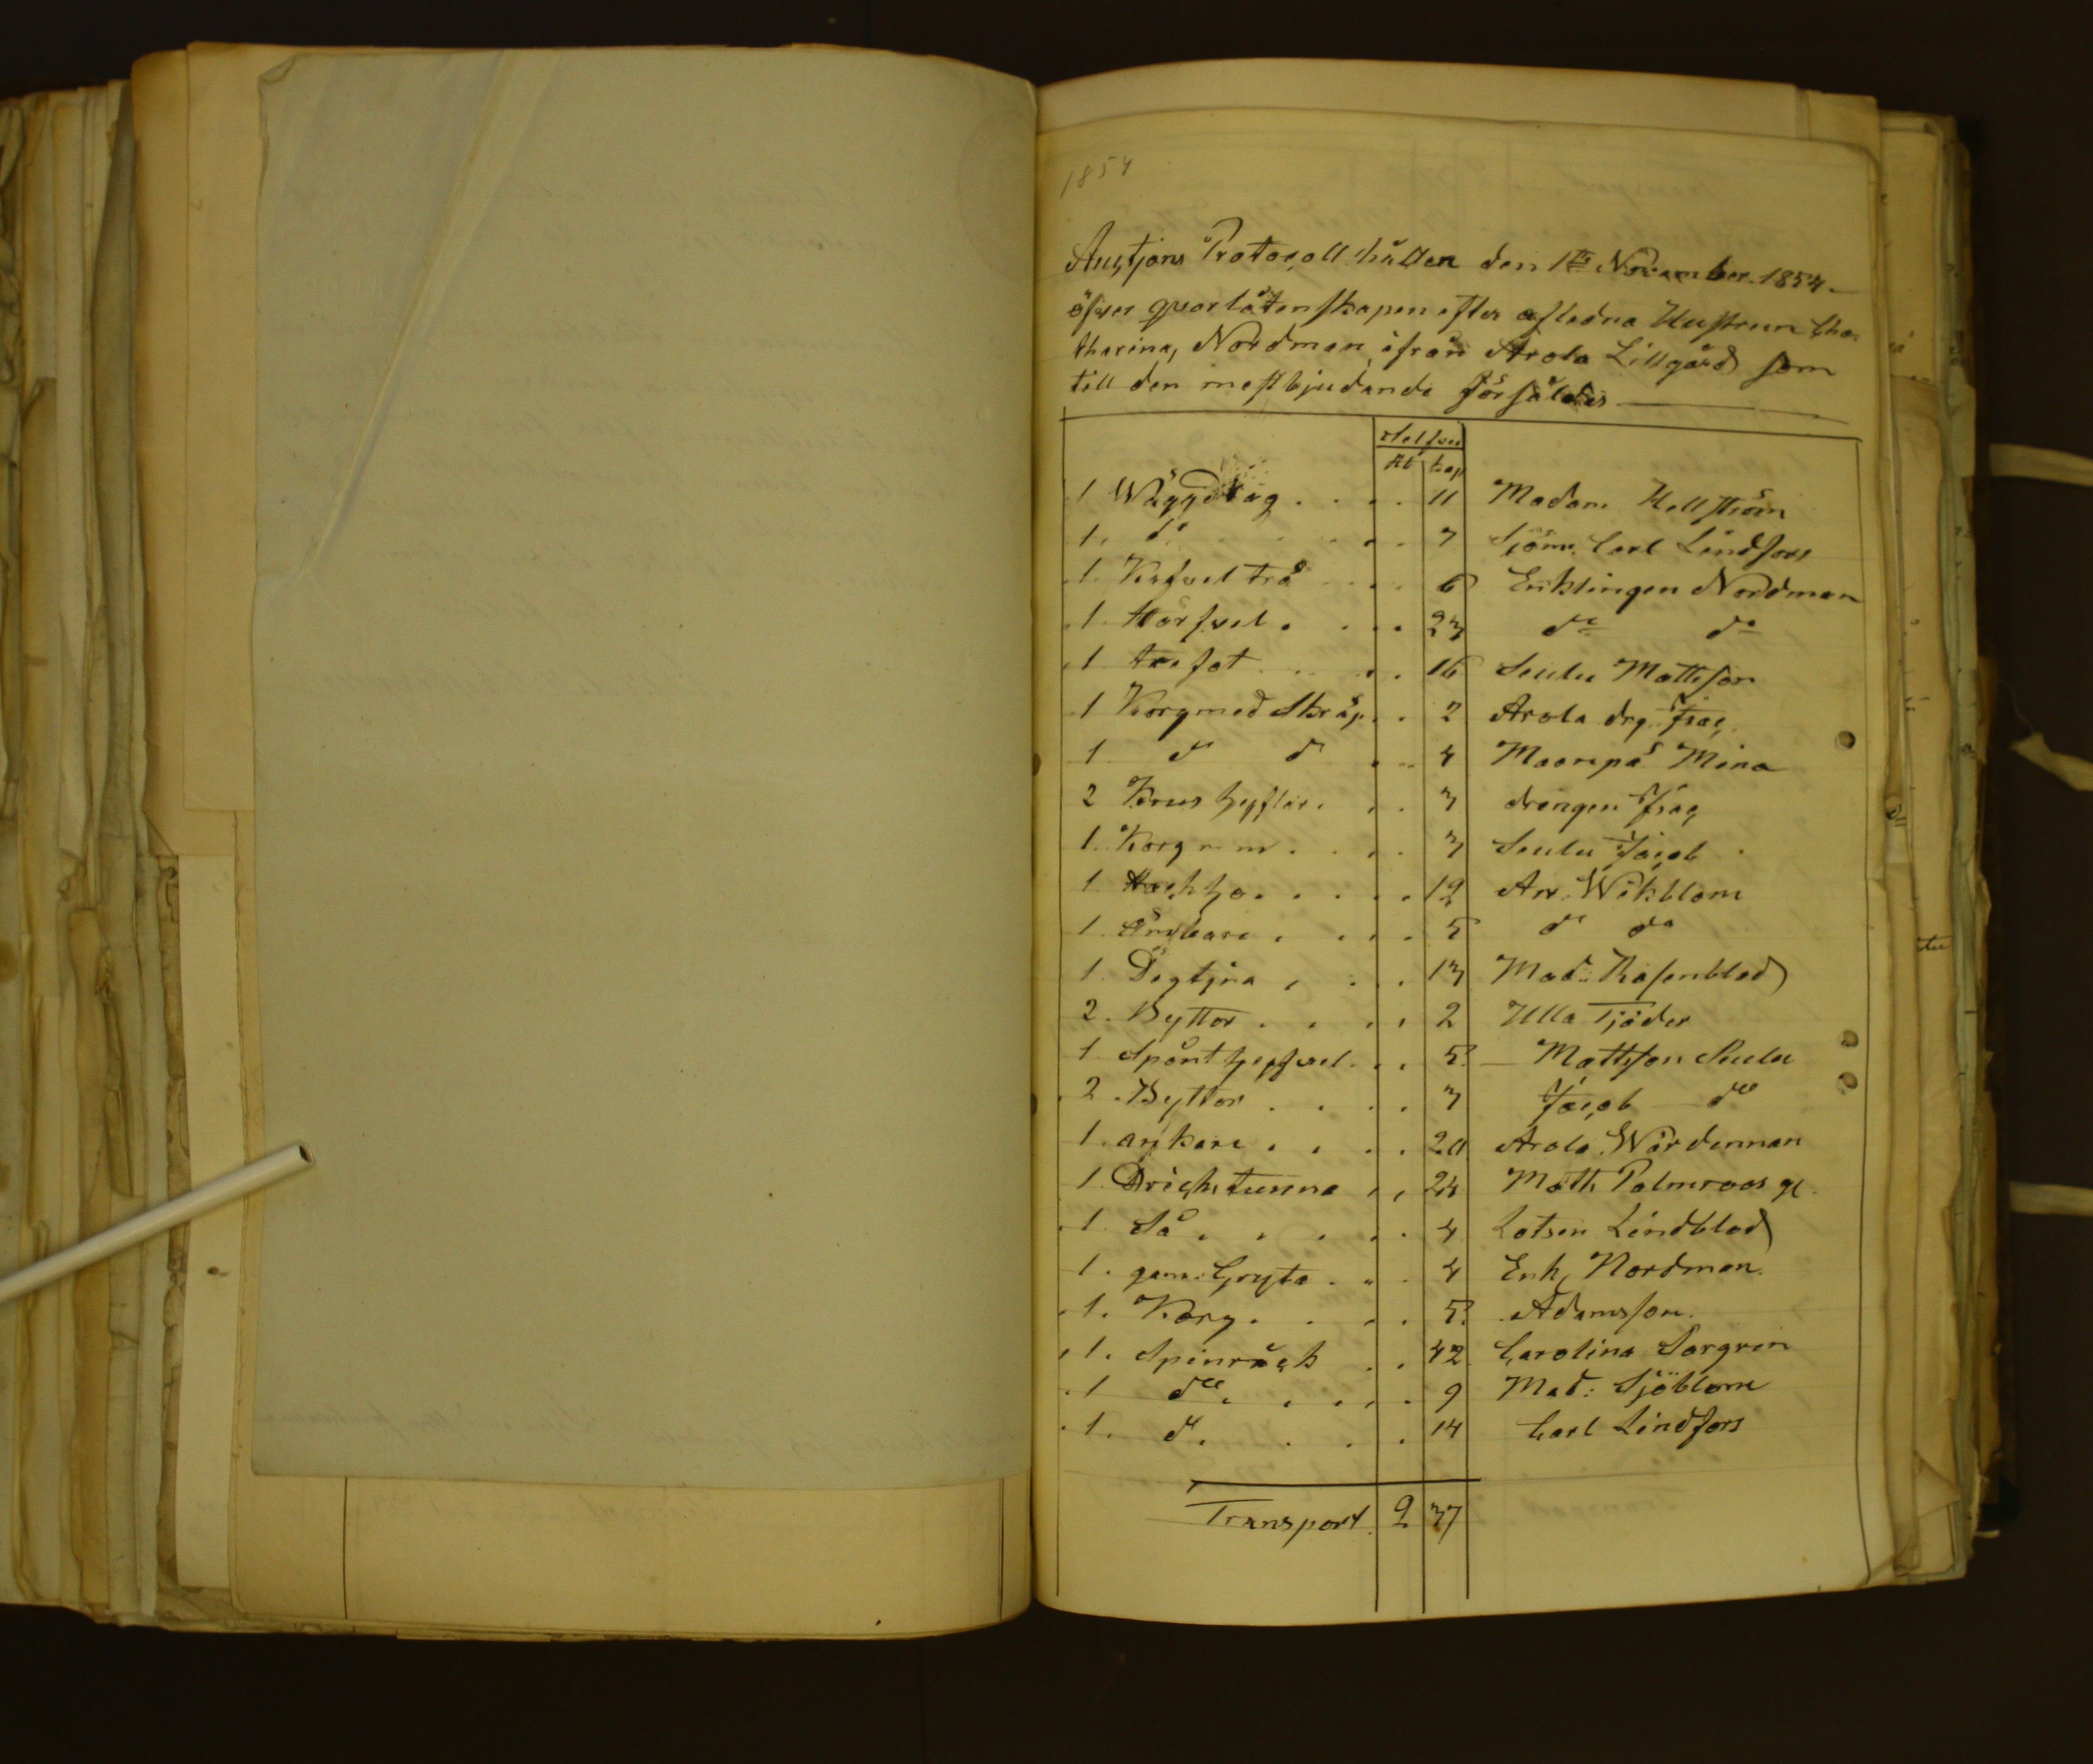 1854
Auctjons Protocoll hållen den 1ste November 1854
öfver qvarlåtenskapen efter afledna Hustrun Cha-
tharina Nordman ifrån Arola Lillgård som
till den mestbjudande försåldes
Silfver
Rb kop
1 Wäggdrag 11 Madam Hellström
1 do 7 Sjöm. Carl Lindfors
1 Kafvel trä 6 Enklingen Nordman
1 Härfvel 23 do do
1 trefot 16 Seulu Mattsson
1 Korg med Skräp 2 Arola drg. Isac
1 do do 4 Moorpä Mina
2 Krus 3 drengen Isac
1 Korg 3 Seulu Jacob
1 12 Arr. Wikblom
1 Ämbare 5 do do
1 Degtjna 13 Mad: Rosenblad
2 Byttor 2 Ulla Tjäder
1 5 Mattsson Seulu
2 Byttor 3 Jacob do
1 ankare 20 Arola Wärdinnan
1 Dricks tunna 24 Matts Palmroos
1 Så 4 Lotsen Lindblad
1 gam: Gryta 4 Enk, Nordman
1 Korg 5 Adamsson
1 Spinråck 42 Carolina
1 do 9 Mad: Sjöblom
1 do 14 Carl Lindfors
Transport 2 37